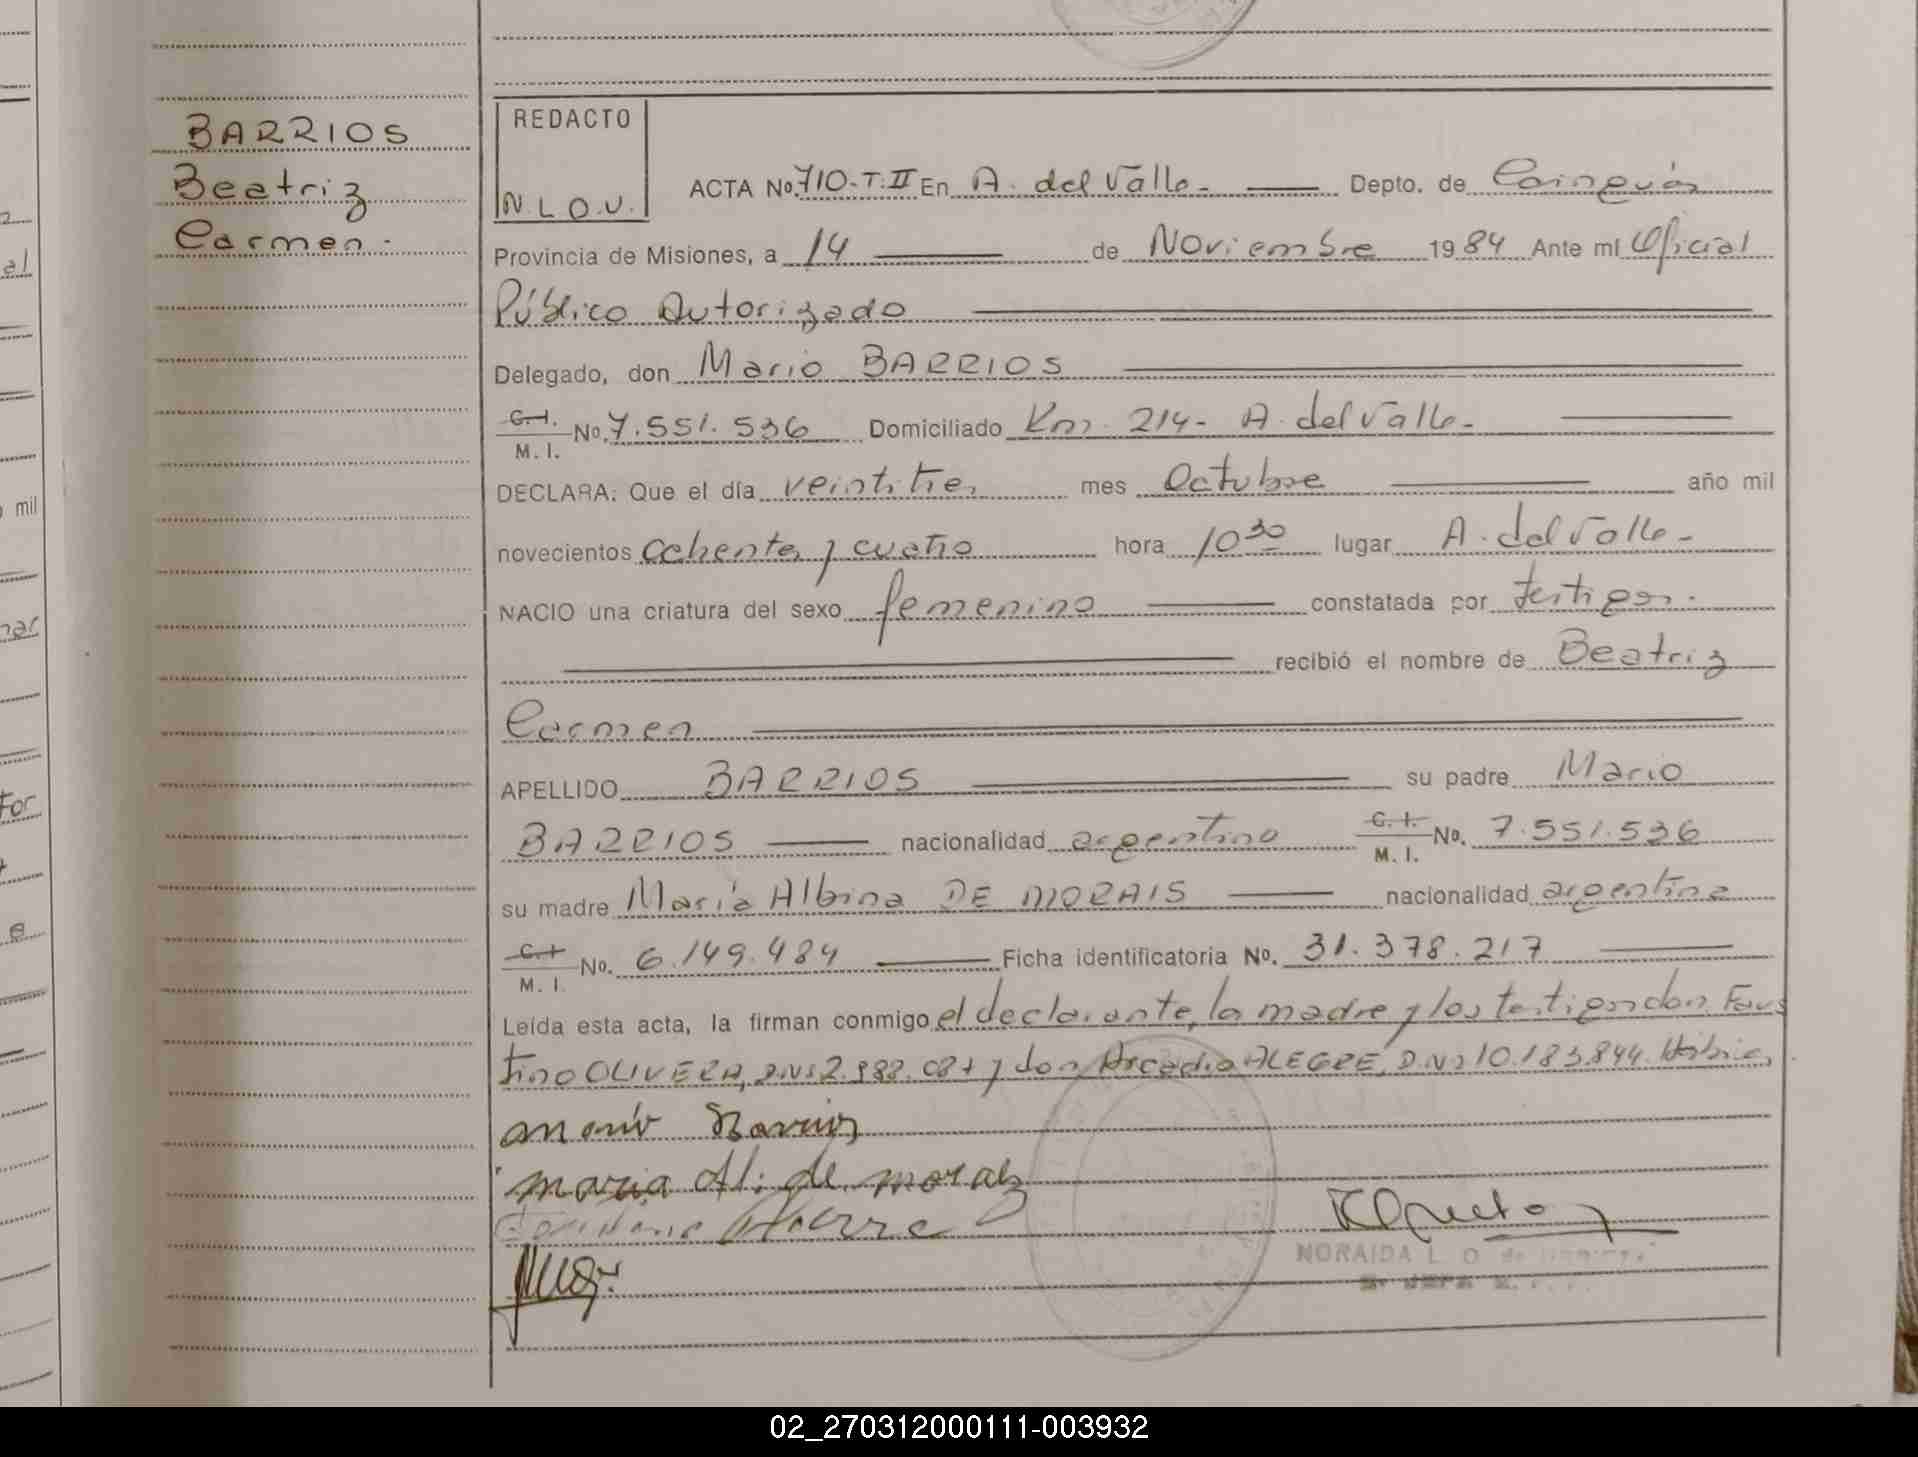 BARRIOS
Beatriz
Carmen.
REDACTO
N.L.O.V.
ACTA No. 710-T:II En A. del Valle- Depto. de Cainguás
Provincia de Misiones, a 14 de Noviembre 1984 Ante mí Oficial
Público Autorizado
Delegado, don Mario BARRIOS
C.I. M.I. No. 7.551.536 Domiciliado Km. 214- A. del Valle-
DECLARA: Que el día veintitres mes Octubre año mil
novecientos ochenta y cuatro hora 10 30 lugar A. del Valle-
NACIO una criatura del sexo femenino constatada por testigos.
recibió el nombre de Beatriz
Carmen
APELLIDO BARRIOS su padre Mario
BARRIOS nacionalidad argentino C.I. M.I. No. 7.551.536
su madre María Albina DE MORAIS nacionalidad argentina
C.I. M.I. No. 6.149.484 Ficha identificatoria No. 31.378.217
Leída esta acta, la firman conmigo el declarante, la madre y los testigos don Faus
tino OLIVERA, D.N.I 2. y don Arcadio ALEGRE, D.N.I 10.183.844.
Mario Barrios
maria Al. de morais
NORAIDA L. O. de
02_270312000111-003932